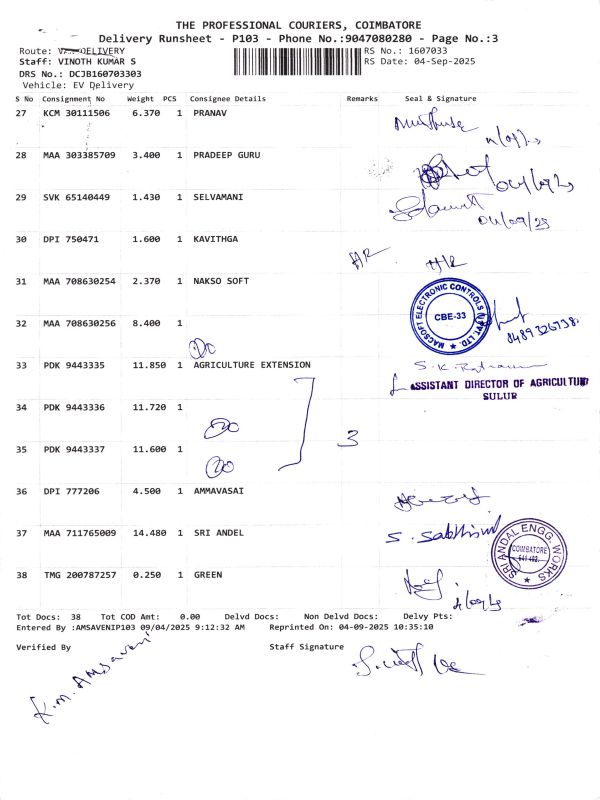 THE PROFESSIONAL COURIERS, COIMBATORE
Delivery Runsheet - P103 - Phone No.:9047080280 - Page No.:3
Route: DELIVERY
RS No.: 1607033
Staff: VINOTH KUMAR S
RS Date: 04-Sep-2025
DRS No.: DCJB160703303
Vehicle: EV Delivery
S No Consignment No Weight PCS Consignee Details Remarks Seal & Signature
27 KCM 30111506 6.370 1 PRANAV
28 MAA 303385709 3.400 1 PRADEEP GURU
04/09/25
29 SVK 65140449 1.430 1 SELVAMANI
04/09/25
30 DPI 750471 1.600 1 KAVITHGA
31 MAA 708630254 2.370 1 NAKSO SOFT
MACSOFT ELECTRONIC CONTROLS (I) PVT. LTD.
CBE-33
32 MAA 708630256 8.400 1
8489326738
Do
33 PDK 9443335 11.850 1 AGRICULTURE EXTENSION
ASSISTANT DIRECTOR OF AGRICULTURE
SULUR
34 PDK 9443336 11.720 1
Do
3
35 PDK 9443337 11.600 1
Do
36 DPI 777206 4.500 1 AMMAVASAI
37 MAA 711765009 14.480 1 SRI ANDEL
SRI ANDAL ENGG. WORKS
COIMBATORE
641 402.
38 TMG 200787257 0.250 1 GREEN
Tot Docs: 38 Tot COD Amt: 0.00 Delvd Docs: Non Delvd Docs: Delvy Pts:
Entered By :AMSAVENIP103 09/04/2025 9:12:32 AM Reprinted On: 04-09-2025 10:35:10
Verified By Staff Signature
K.M. AMSaveni